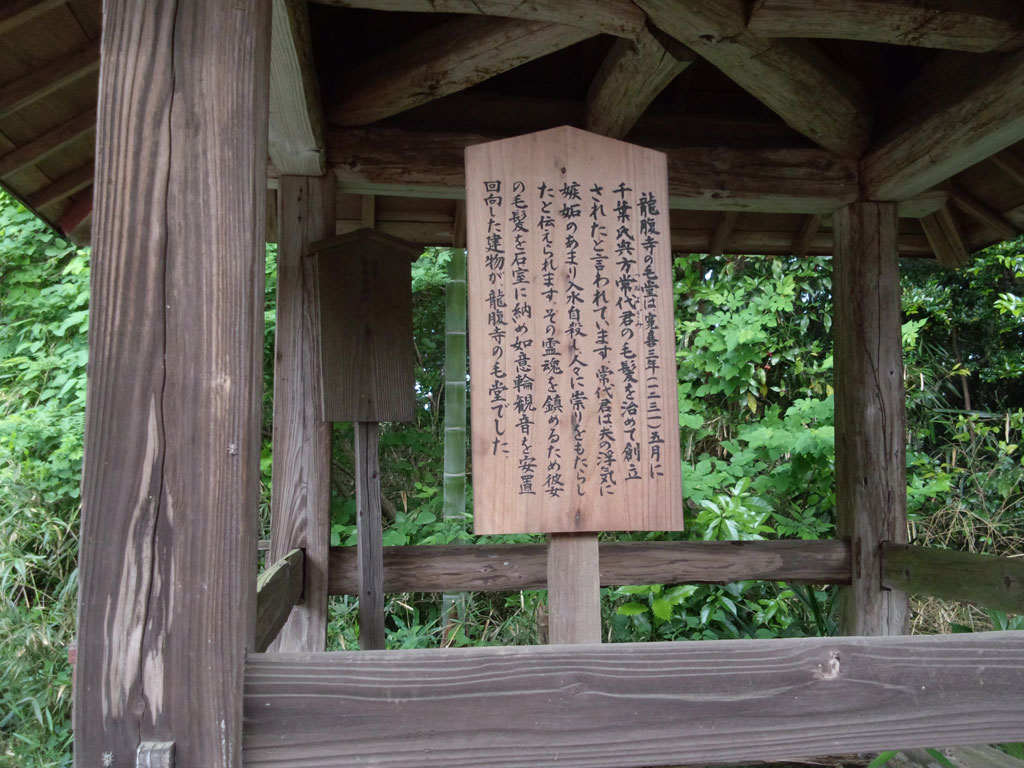 龍腹寺の毛堂は寛喜三年(一二三一)五月に
千葉氏奥方常代君の毛髪を治めて創立
されたと言われています。常代君は夫の浮気に
嫉妬のあまり入水自殺し人々に祟りをもたらし
たと伝えられます。その霊魂を鎮めるため彼女
の毛髪を石室に納め如意輪観音を安置
回向した建物が、龍腹寺の毛堂でした。